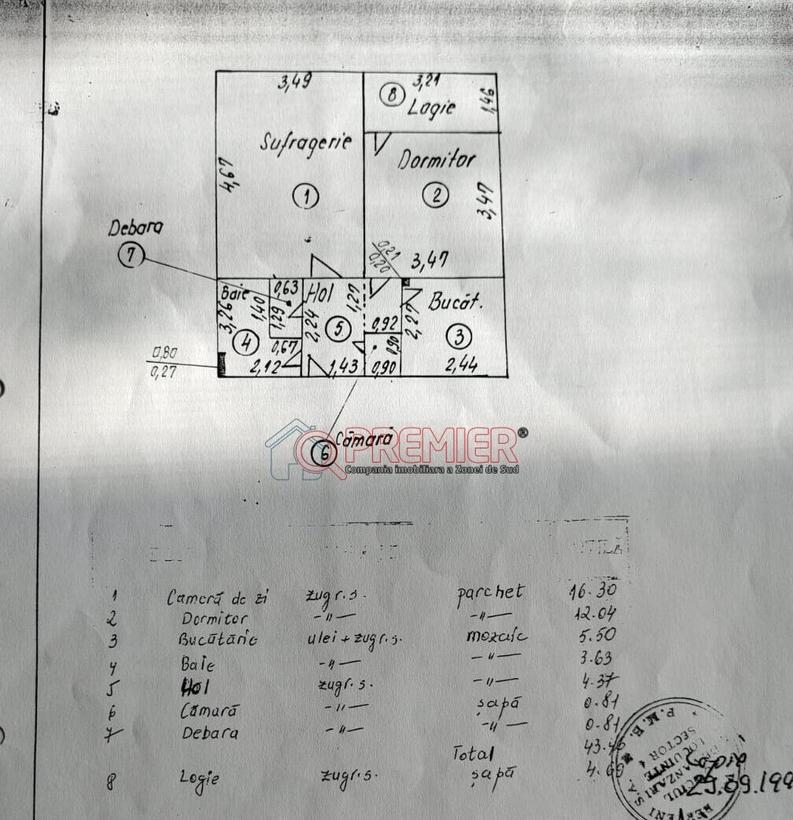 3,49
3,21
8
Logie
1,46
Sufragerie
Dormitor
4,67
1
2
3,47
Debara
7
0,21
0,20
3,47
Baie
0,63
Hol
1,27
Bucăt.
3,26
1,40
1,29
2,24
5
0,92
2,27
3
4
0,67
0,90
0,80
0,27
2,12
1,43
0,90
2,44
6
Cămară
PREMIER®
Compania imobiliara a Zonei de Sud
1 Cameră de zi zugr.s. parchet 16.30
2 Dormitor -"- -"- 12.04
3 Bucătărie ulei + zugr.s. mozaic 5.50
4 Baie -"- -"- 3.63
5 Hol zugr.s. -"- 4.37
6 Cămară -"- șapă 0.81
7 Debara -"- -"- 0.81
Total 43.46
8 Logie zugr.s. șapă 4.69
P.M.B.
SECTOR 4
Copie
29.09.199